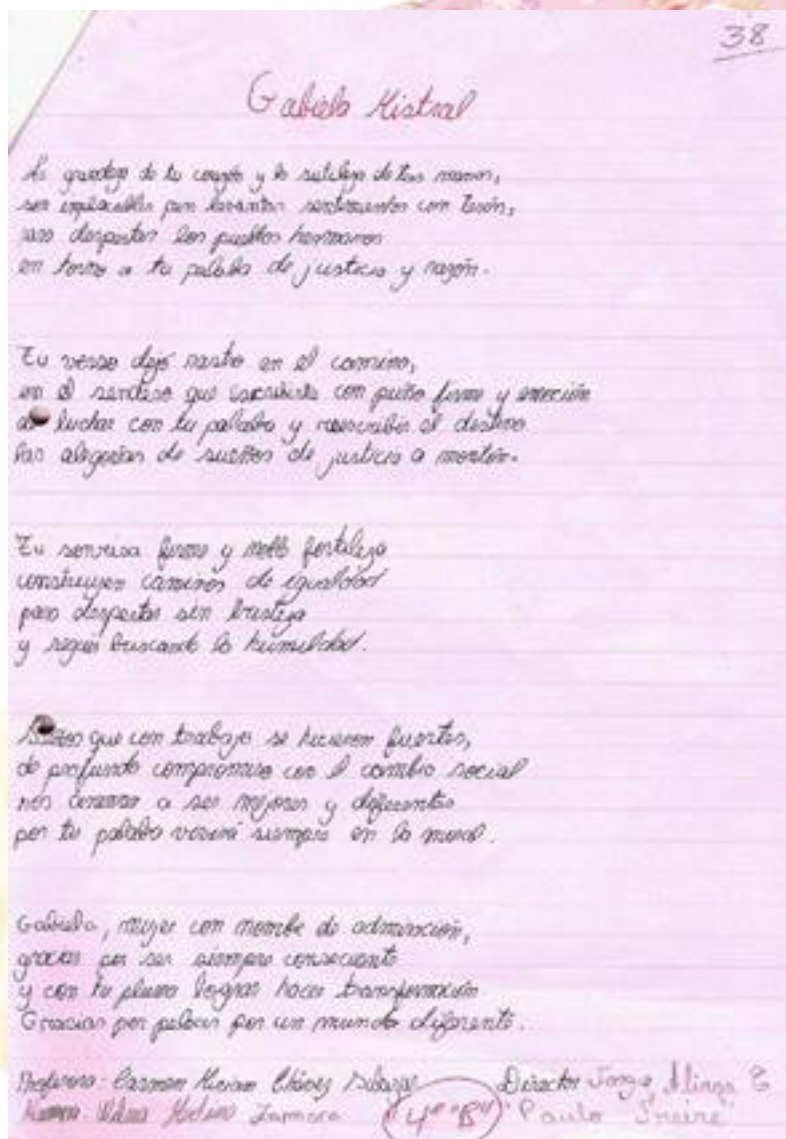 38
Gabiela Mistral
La grandeza de tu corazón y la sutileza de tus manos,
son implacables para levantar sentimientos con tesón,
para despertar los pueblos hermanos
en torno a tu palabra de justicia y razón.
Tu verso dejó rastro en el camino,
en el sendero que con puño firme y emoción
al luchar con tu palabra y reescribir el destino
las alegorías de sueños de justicia a montón.
Tu sonrisa firme y noble fortaleza
construyen caminos de igualdad
para despertar sin tristeza
y seguir buscando la humildad.
que con trabajo se hicieron fuertes,
de profundo compromiso con el cambio social
nos a ser mejores y diferentes
por tu palabra vivirá siempre en la moral.
Gabriela, mujer con nombre de admiración,
gracias por ser siempre consecuente
y con tu pluma lograr hacer transformación.
Gracias por pelear por un mundo diferente.
Profesora: Carmen Miriam Chávez Salazar Director Jorge Aliaga
Zamora "4º "B" "Paulo Freire"